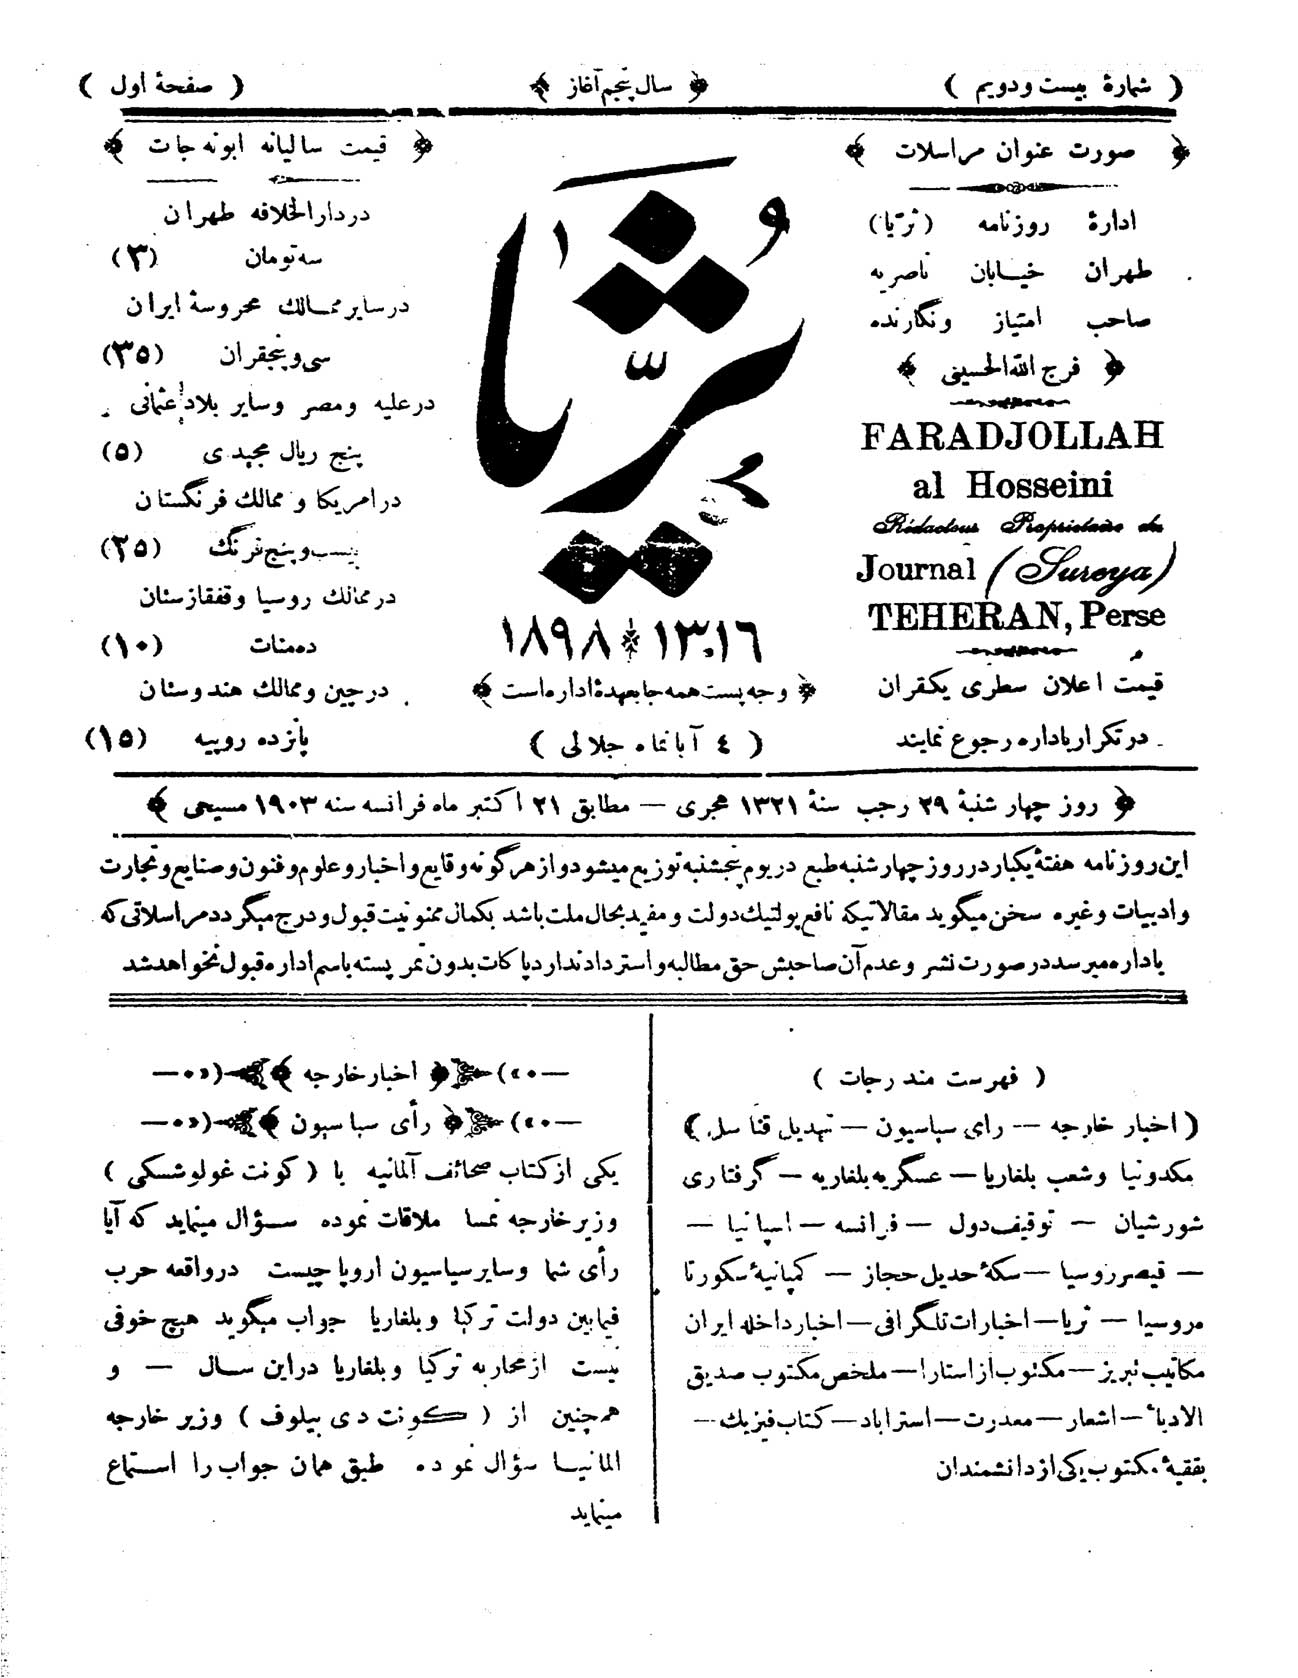 ( شمارهٔ بیست و دویم )
﴿ سال پنجم آغاز ﴾
( صفحهٔ اول )
﴿ صورت عنوان مراسلات ﴾
ادارهٔ روزنامه (ثریّا)
طهران خیابان ناصریه
صاحب امتیاز ونگارنده
﴿ فرج الله الحسینی ﴾
FARADJOLLAH
al Hosseini
Rédacteur Propriétaire du
Journal (Sureya)
TEHERAN, Perse
قیمت اعلان سطری یکقران
در تکرار باداره رجوع نمایند
ثریّا
۱۸۹۸ ※ ۱۳۱۶
﴿ وجه پست همه جا بعهدهٔ اداره است ﴾
( ٤ آبانماه جلالی )
﴿ قیمت سالیانه ابونه جات ﴾
در دارالخلافه طهران
سه تومان (۳)
در سایر ممالك محروسهٔ ایران
سی و پنجقران (۳۵)
در علیه ومصر وسایر بلاد عثمانی
پنج ریال مجیدی (۵)
در امریکا و ممالك فرنگستان
بیست و پنج فرنك (۲۵)
در ممالك روسیا وقفقازستان
ده منات (۱۰)
در چین وممالك هندوستان
پانزده روپیه (۱۵)
﴿ روز چهار شنبهٔ ۲۹ رجب سنهٔ ۱۳۲۱ هجری — مطابق ۲۱ اکتبر ماه فرانسه سنه ۱۹۰۳ مسیحی ﴾
این روزنامه هفتهٔ یکبار در روز چهار شنبه طبع در یوم پنجشنبه توزیع میشود و از هر گونه وقایع و اخبار و علوم و فنون و صنایع و تجارت
و ادبیات وغیره سخن میگوید مقالاتیکه نافع پولتیك دولت ومفید بحال ملت باشد بکمال ممنونیت قبول و درج میگردد مراسلاتی که
باداره میرسد در صورت نشر وعدم آن صاحبش حق مطالبه و استرداد ندارد پاکات بدون تمر پسته باسم اداره قبول نخواهد شد
( فهرست مندرجات )
( اخبار خارجه — رای سیاسیون — تبدیل قناسل )
مکدونیا وشعب بلغاریا — عسگریه بلغاریه — گرفتاری
شورشیان — توقیف دول — فرانسه — اسپانیا —
— قیصر روسیا — سکهٔ حدیل حجاز — کمپانیهٔ سکورتا
مروسیا — ثریا — اخبارات تلگرافی — اخبار داخله ایران
مکاتیب تبریز — مکتوب از استارا — ملخص مکتوب صدیق
الادباء — اشعار — معذرت — استراباد — کتاب فیزیك —
بقیهٔ مکتوب یکی از دانشمندان
﴿ اخبار خارجه ﴾
﴿ رأی سیاسیون ﴾
یکی از کتاب صحائف آلمانیه با ( کونت غولوشسکی )
وزیر خارجه نمسا ملاقات نموده سؤال مینماید که آیا
رأی شما وسایر سیاسیون اروپا چیست در واقعه حرب
فیمابین دولت ترکیا وبلغاریا جواب میگوید هیچ خوفی
نیست از محاربه ترکیا وبلغاریا در این سال — و
همچنین از ( کونت دی بیلوف ) وزیر خارجه
المانیا سؤال نموده طبق همان جواب را استماع
مینماید